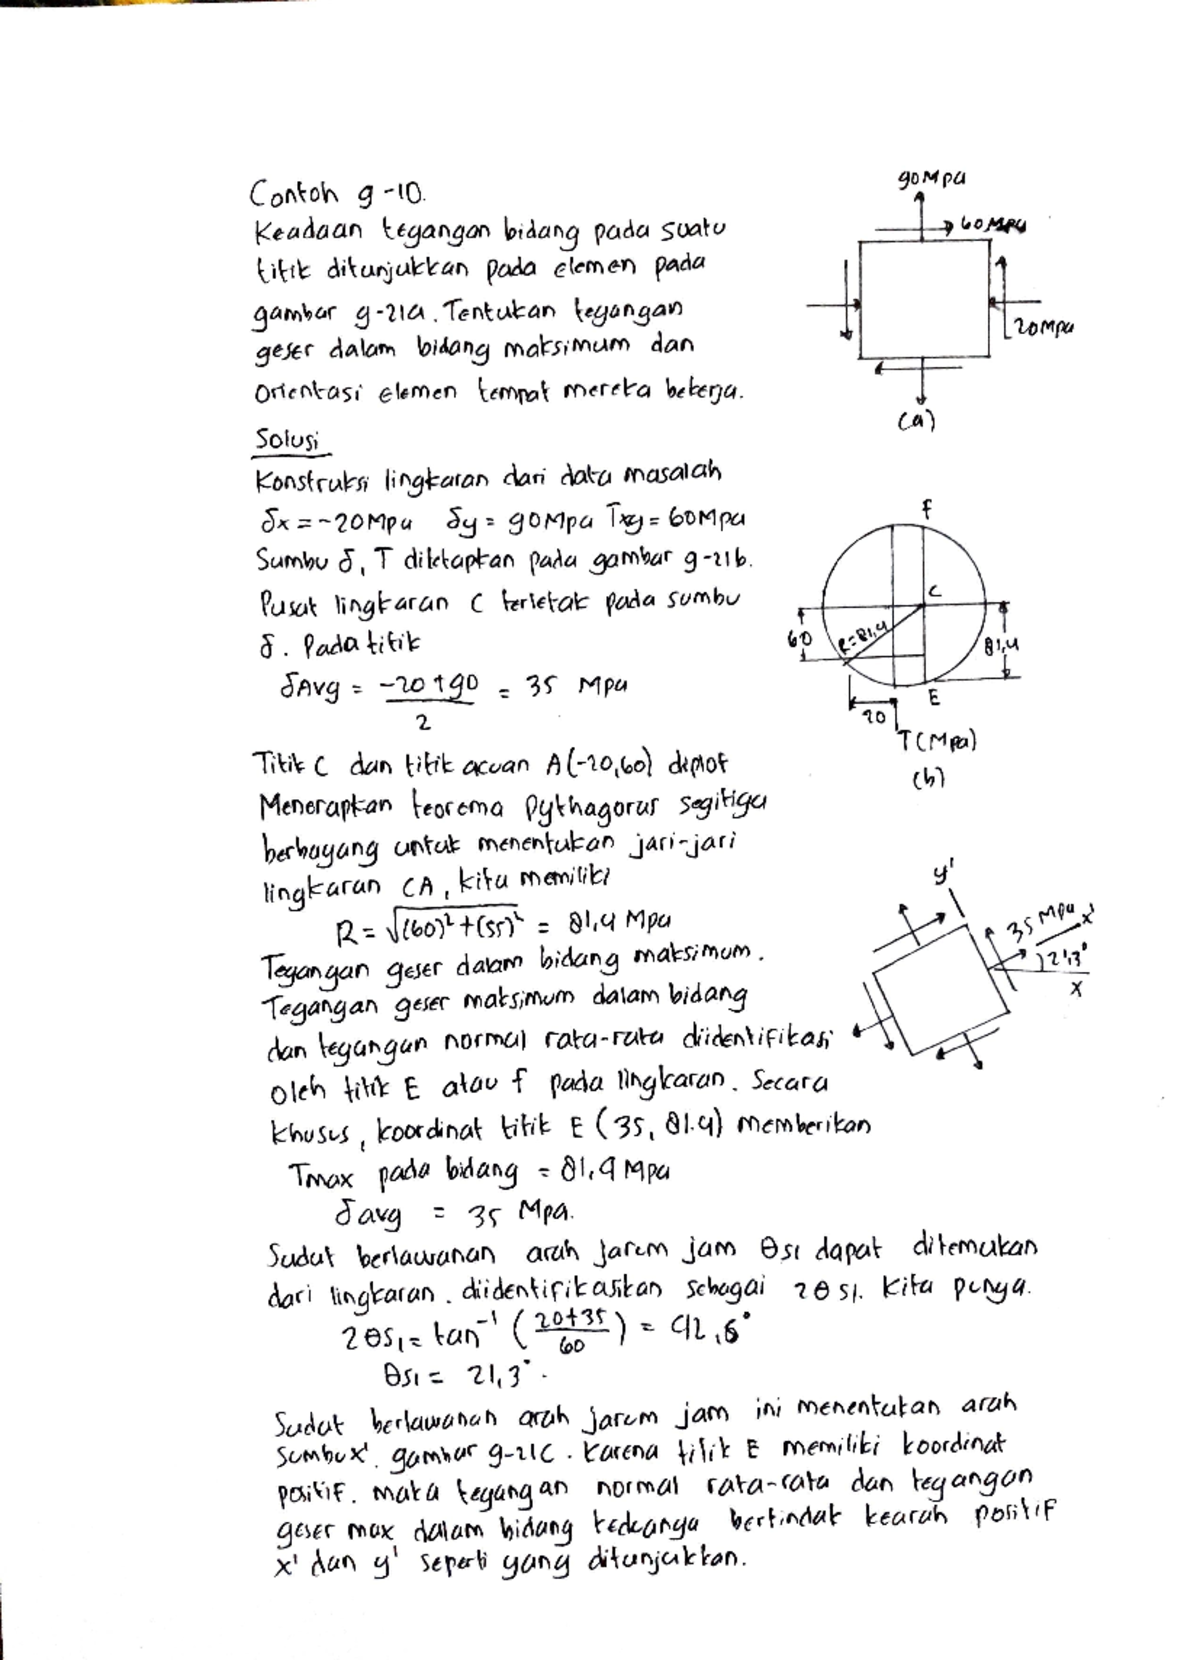 Contoh 9-10.
Keadaan tegangan bidang pada suatu
titik ditunjukkan pada elemen pada
gambar 9-21a. Tentukan tegangan
geser dalam bidang maksimum dan
Orientasi elemen tempat mereka bekerja.
90 Mpa
60 Mpa
20 Mpa
(a)
Solusi
Konstruksi lingkaran dari data masalah
δx = -20 Mpa δy = 90 Mpa Txy = 60 Mpa
Sumbu δ, T diktapkan pada gambar 9-21b.
Pusat lingkaran C terletak pada sumbu
δ. Pada titik
δAvg = -20+90/2 = 35 Mpa
F
C
60
R=81,4
81,4
E
20
T (Mpa)
(b)
Titik C dan titik acuan A(-20,60) diplot
Menerapkan teorema Pythagorus segitiga
berbayang untuk menentukan jari-jari
lingkaran CA, kita memiliki
R = √(60)²+(55)² = 81,4 Mpa
Tegangan geser dalam bidang maksimum.
Tegangan geser maksimum dalam bidang
dan tegangan normal rata-rata diidentifikasi
oleh titik E atau f pada lingkaran. Secara
khusus, koordinat titik E (35, 81.4) memberikan
Tmax pada bidang = 81,4 Mpa
δavg = 35 Mpa.
y'
35 Mpa
x'
21,3°
x
Sudut berlawanan arah jarum jam θs1 dapat ditemukan
dari lingkaran. diidentifikasikan sebagai 2θs1. Kita punya.
2θs1 = tan⁻¹ (20+35/60) = 42,6°
θs1 = 21,3°.
Sudut berlawanan arah jarum jam ini menentukan arah
sumbu x'. gambar 9-21C. Karena titik E memiliki koordinat
positif. maka tegangan normal rata-rata dan tegangan
geser max dalam bidang keduanya bertindak kearah positif
x' dan y' seperti yang ditunjukkan.